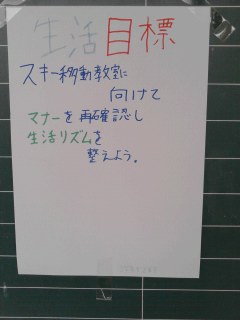 生活目標
スキー移動教室に
向けて
マナーを再確認し
生活リズムを
整えよう。